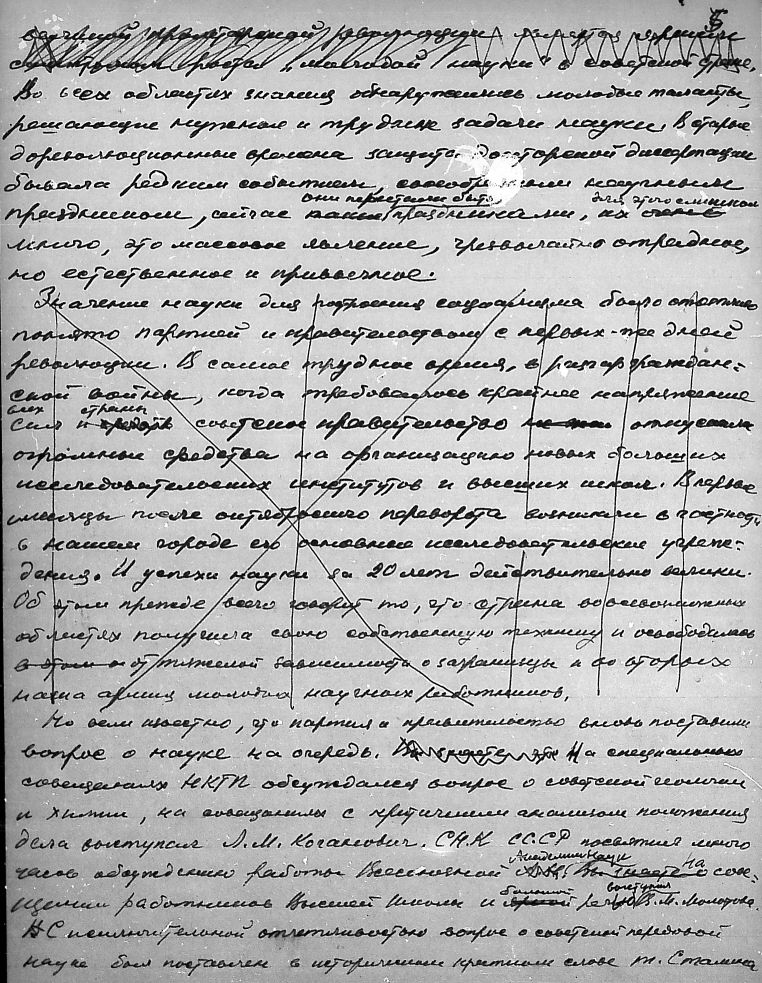 5
является ярким
роста „молодой науки" в советской стране.
Во всех областях знания обнаружились молодые таланты,
решающие нужные и трудные задачи науки. В старые
дореволюционные времена защита докторской диссертации
бывала редким событием, своеобразным научным
они перестали быть для этого слишком
праздником, сейчас праздниками, их очень
много, это массовое явление, чрезвычайно отрадное,
но естественное и привычное.
Значение науки для построения социализма было отчетливо
понято партией и правительством с первых-же дней
революции. В самое трудное время, в разгар граждан-
ской войны, когда требовалось крайнее напряжение
всех страны
сил и средств советское правительство отпускало
огромные средства на организацию новых больших
исследовательских институтов и высших школ. В первые
месяцы после октябрьского переворота возникли в частности
в нашем городе его основные исследовательские учреж-
дения. И успехи науки за 20 лет действительно велики.
Об этом прежде всего говорит то, что страна во всевозможных
областях получила свою собственную технику и освободилась
в этом и от тяжелой зависимости о заграницы и во вторых
наша армия молодых научных работников.
Но всем известно, что партия и правительство вновь поставили
вопрос о науке на очередь. На специальных
совещаниях НКТП обсуждался вопрос о советской физике
и химии, на совещаниях с критичным анализом положения
дела выступал Л.М. Каганович. СНК СССР посвятил много
Академии Наук на
часов обсуждению работы Всесоюзной Вы знаете о сове-
большой выступил
щании работников Высшей Школы и речью В.М. Молотов.
С исключительной отчетливостью вопрос о советской передовой
науке был поставлен в историческом кратком слове т. Сталина